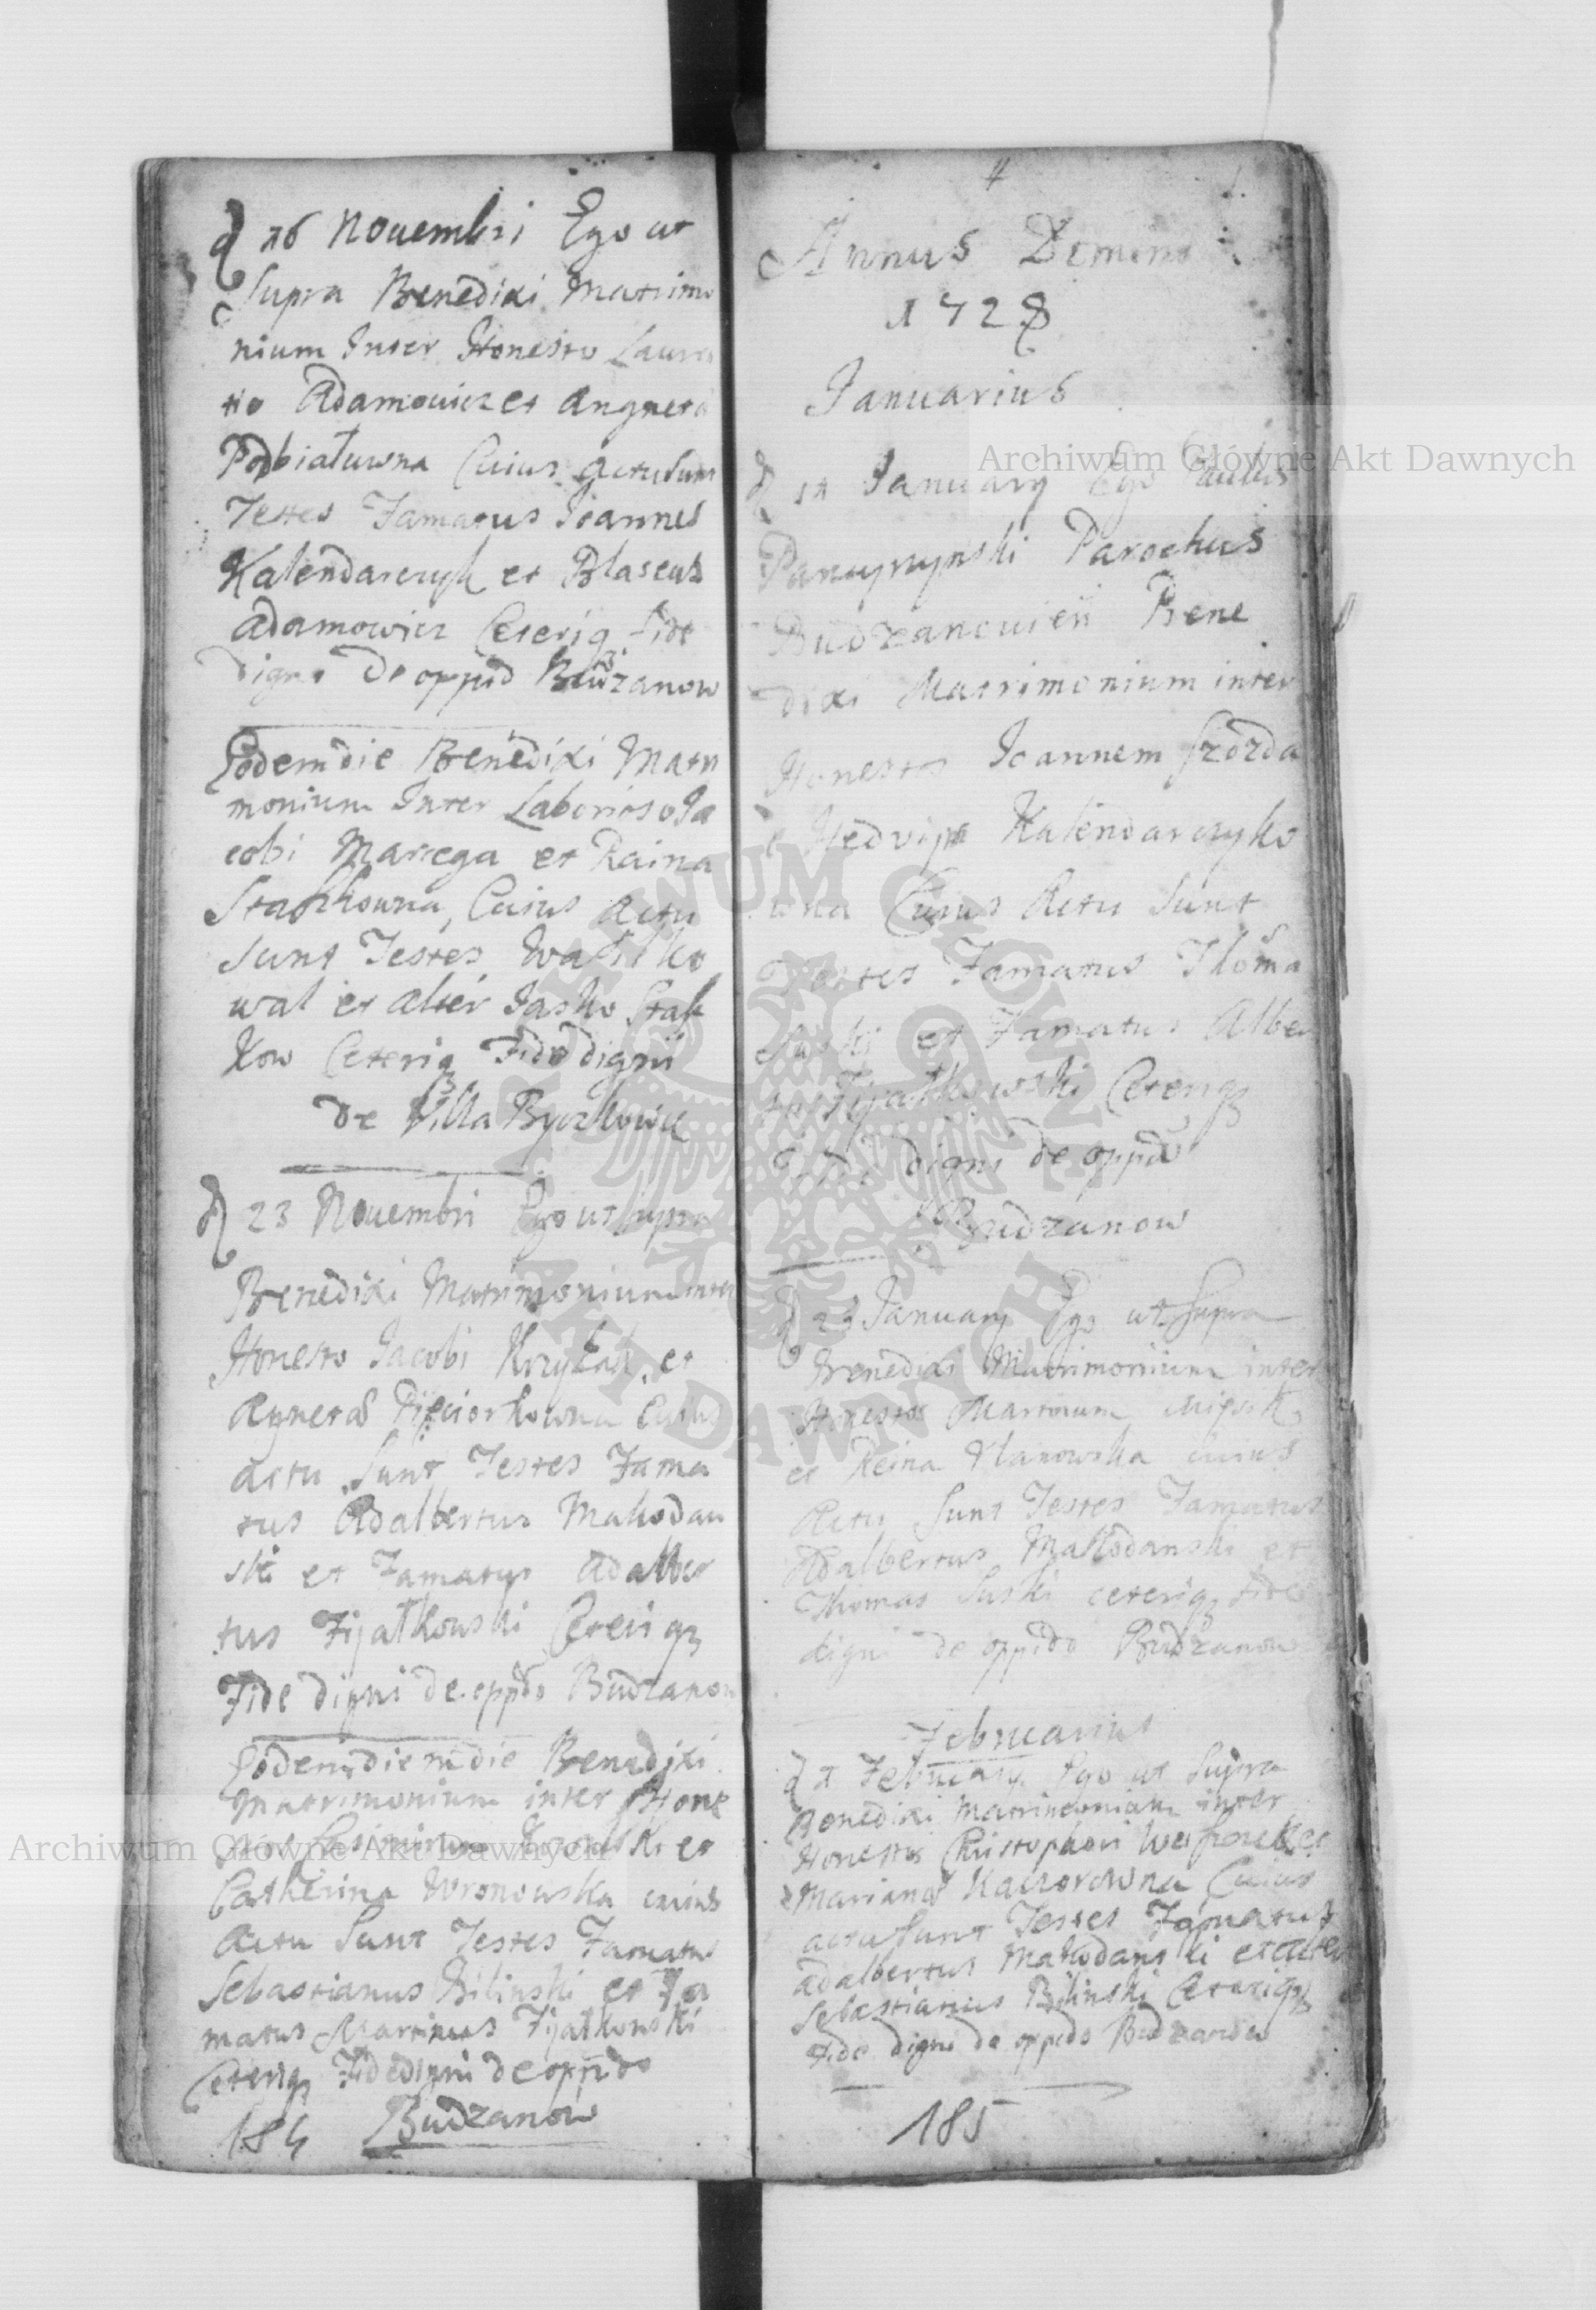 d 16 Nouembri Ego ut
Supra Benedixi Matrimo
nium Inter Honesto Lauren
tio Adamowicz et Angneta
Podbiałuwna Cuius actu sunt
Testes Famatus Ioannes
Kalendarczyk et Blaseus
Adamowicz Ceteriq fide
digni De oppid Budzanow
Eodem die Benedixi Matri
monium Inter Laborioso Ja
cobi Marcega et Raina
Cuius Actu
Sunt Testes
wal et alter Jasko Stah
kow Ceteriq Fide dignii
De Villa
d 23 Nouembri Ego ut supra
Benedixi Matrimonium inter
Honesto Jacobi et
Agneta Cuius
actu Sunt Testes Fama
tus Adalbertus Makodan
ski et Famatus Adalber
tus Fijałkowski Ceteriq
Fide digni de oppido Budzanow
Eodem die Benedixi
Matrimonium inter Hone
et
Catherina Wronowska cuius
Actu Sunt Testes Famatus
Sebastianus Bilinski et Fa
matus Martinus Fijałkowski
Ceteriq Fide digni de oppido
184 Budzanow
Annus Domini
1728
Januarius
d January Ego Paulus
Parochus
Budzanouien Bene
dixi Matrimonium inter
Honestos Joannem
e Hedviga Kalendarczyko
wna Cuius Actu Sunt
Testes Famatus Thoma
Suski et Famatus Alber
tus Fijałkowski Ceteriq
Fide digni de oppido
Budzanow
d 23 January Ego ut Supra
Benedixi Matrimonium inter
Honestos Martinum
et Reina cuius
Actu Sunt Testes Famatus
Adalbertus Makodanski et
Thomas Suski ceteriq Fide
digni de oppido Budzanow
Februarius
d 1 February Ego ut Supra
Benedixi Matrimonium inter
Honestos Christophori
Mariana Kaczorowna Cuius
actu sunt Testes Famatus
Adalbertus Makodanski et alter
Sebastianus Bilinski Ceteriq
Fide digni de oppido Budzanow
185
Archiwum Główne Akt Dawnych
Archiwum Główne Akt Dawnych
ARCHIWUM GŁÓWNE
AKT DAWNYCH